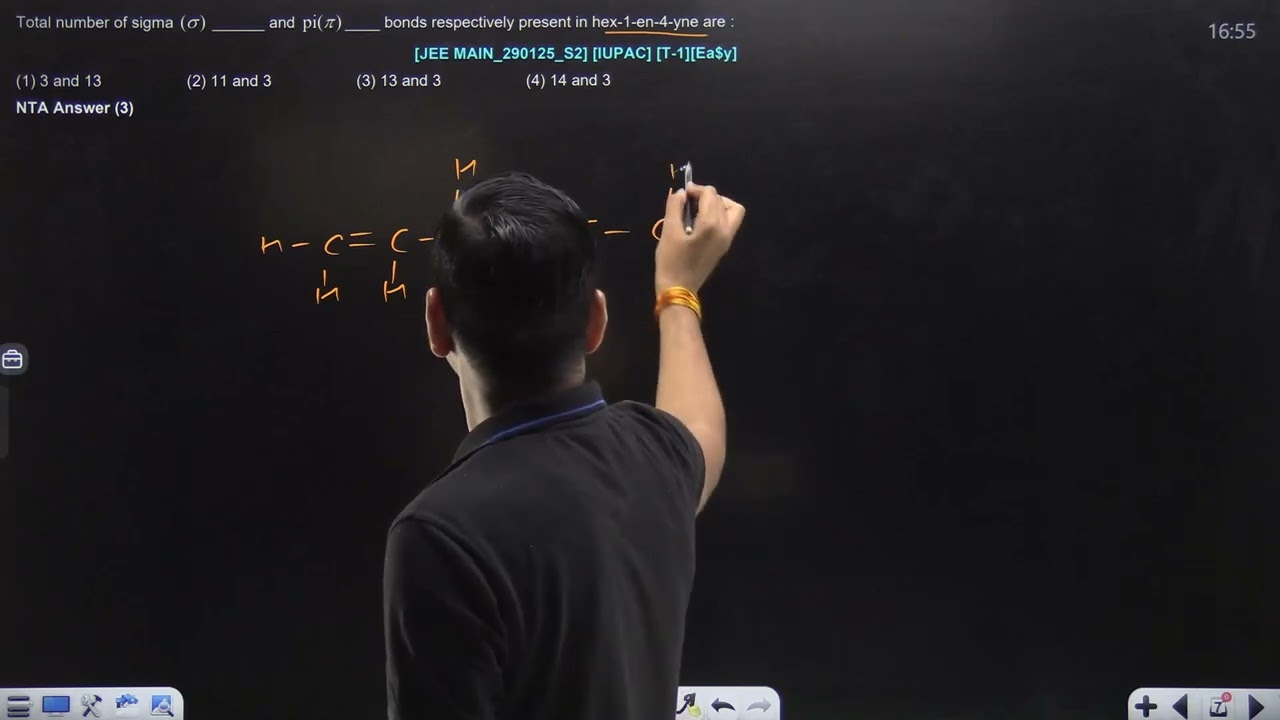 Total number of sigma (σ) ______ and pi(π) ____ bonds respectively present in hex-1-en-4-yne are :
[JEE MAIN_290125_S2] [IUPAC] [T-1][Ea$y]
(1) 3 and 13 (2) 11 and 3 (3) 13 and 3 (4) 14 and 3
NTA Answer (3)
16:55
H H
H – C = C – – C
H H